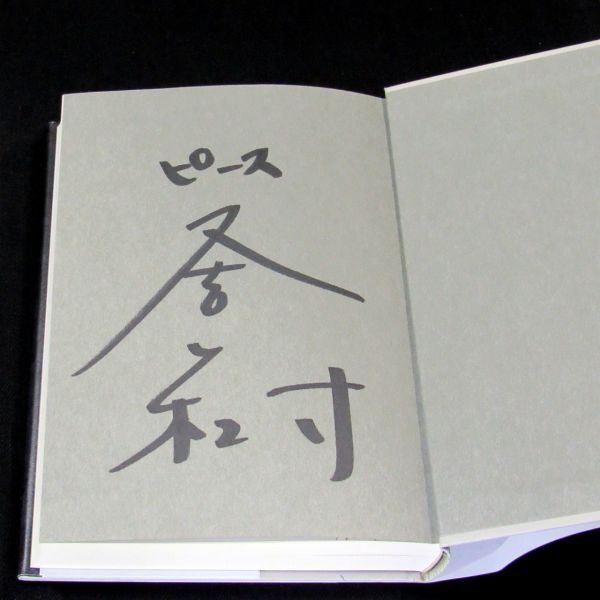 ピース
又吉直樹